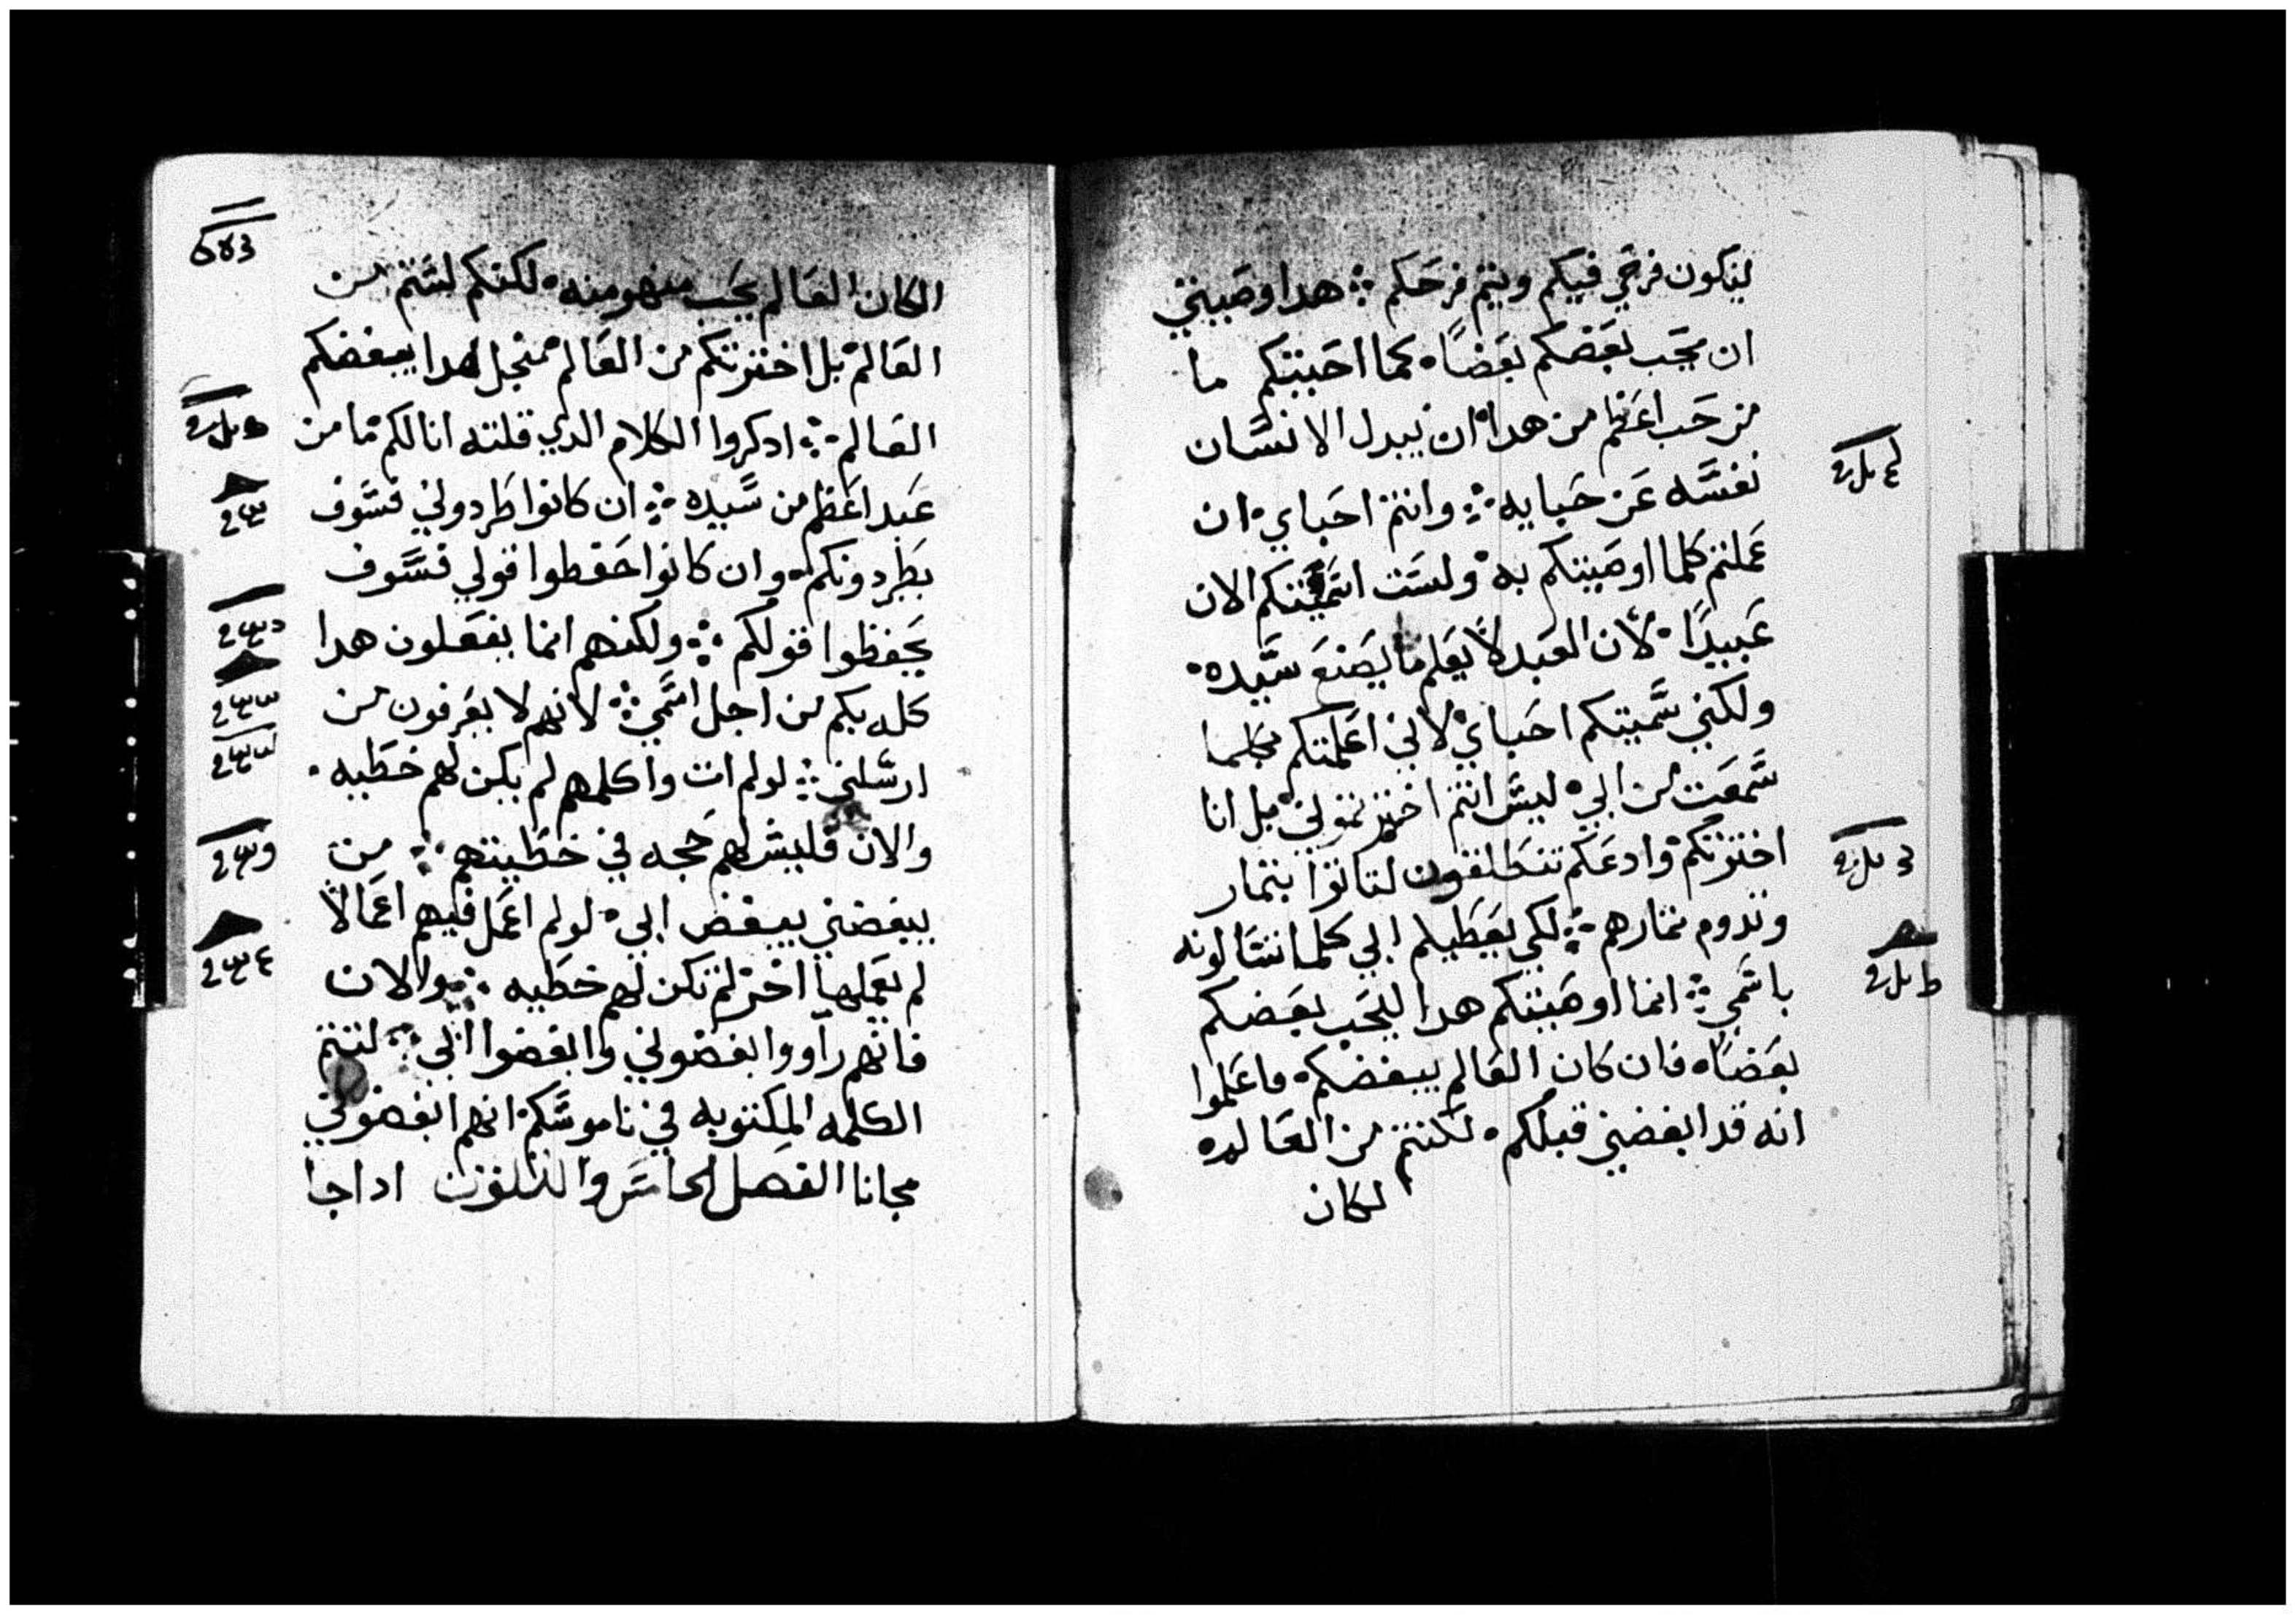 ليكون فرحي فيكم ويتم فرحكم ⁘ هدا وصيتي
ان يحب بعضكم بعضاً ه كما احببتكم ما
من حب اعظم من هدا ان يبدل الانسان
نفسه عن حبايه ⁘ وانتم احباي ان
عملتم كلما اوصيتكم به ولست اسميتكم الان
عبيداً لان العبد لا يعلم ما يصنع سيده
ولكني سميتكم احباي لاني اعلمتكم بكلما
سمعت من ابي ليس انتم اخترتموني بل انا
اخترتكم وادعكم تنطلقون لتاتوا بتمار
وتدوم تمارهم ⁘ لكي يعطيكم ابي كلما تسالونه
باسمي ⁘ انما اوصيتكم هدا ليحب بعضكم
بعضاه فان كان العالم يبغضكم فاعلموا
انه قد ابغضني قبلكم ه لكنتم من العالم ه
لكان
الكان العالم يحب منهو منه لكنكم لستم من
العالم بل اخترتكم من العالم منجل هدا يبغضكم
العالم ⁘ ادكروا الكلام الدي قلته انا لكم ما من
عبد اعظم من سيده ⁘ ان كانوا طردوني فسوف
يطردونكم وان كانوا حفطوا قولي فسوف
يحفظوا قولكم ⁘ ولكنهم انما يفعلون هدا
كله بكم من اجل اسمي ⁘ لانهم لا يعرفون من
ارسلني ⁘ لو لم ات واكلمهم لم يكن لهم خطيه
والان فليس لهم حجه في خطيتهم ⁘ من
يبغضني يبغض ابي لو لم اعمل فيهم اعمالاً
لم يعملها اخر لم تكن لهم خطيه ⁘ والان
فانهم راووا بغضوني وابغضوا ابي ⁘ لتتم
الكلمه المكتوبه في ناموسكم انهم ابغضوني
مجانا الفصل الخامس والتلتون ادا جا